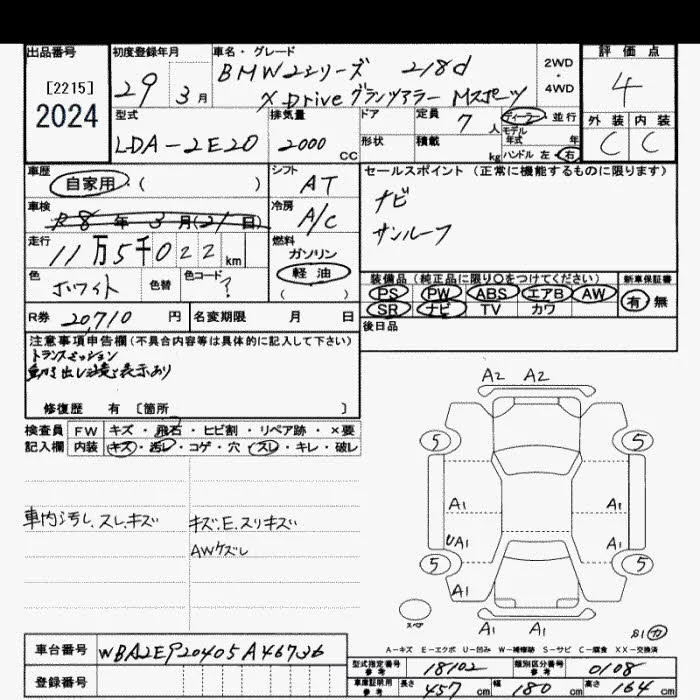 出品番号
[2215]
2024
初度登録年月
29 3月
車名・グレード
BMW2シリーズ 218d
X Drive グランツアラー Mスポーツ
2WD
・
4WD
評価点
4
外装 内装
C C
型式
LDA-2E20
排気量
2000
CC
ドア
定員
7人
形状
積載
kg
ディーラー・並行
モデル年式 年
ハンドル 左・右
車歴
自家用・( )
車検
R8年3月(21日)
走行
11万5千022km
色
ホワイト
色替
色コード
?
シフト
AT
冷房
A/C
燃料
ガソリン
軽油
( )
セールスポイント (正常に機能するものに限ります)
ナビ
サンルーフ
装備品 (純正品に限り○をつけてください)
PS PW ABS エアB AW
SR ナビ TV カワ
新車保証書
有 無
R券 20,710円
名変期限 月 日
後日品
注意事項申告欄 (不具合内容等は具体的に記入して下さい)
トランスミッション
表示あり
修復歴 有 [箇所 ]
検査員記入欄
FW キズ・飛石・ヒビ割・リペア跡・×要
内装 キズ・汚レ・コゲ・穴・スレ・キレ・破レ
車内汚し、スレ、キズ
キズ.E.スリキズ
AWケズレ
A2 A2
5 5
A1 A1
UA1 A1
5 5
A1
A1 A1
スペア
A-キズ E-エクボ U-凹み W-補修跡 S-サビ C-腐食 XX-交換済
車台番号
登録番号
型式指定番号
参考
18102
類別区分番号
参考
0108
車庫証明用
参考
長さ 457cm
幅 180cm
高さ 164cm